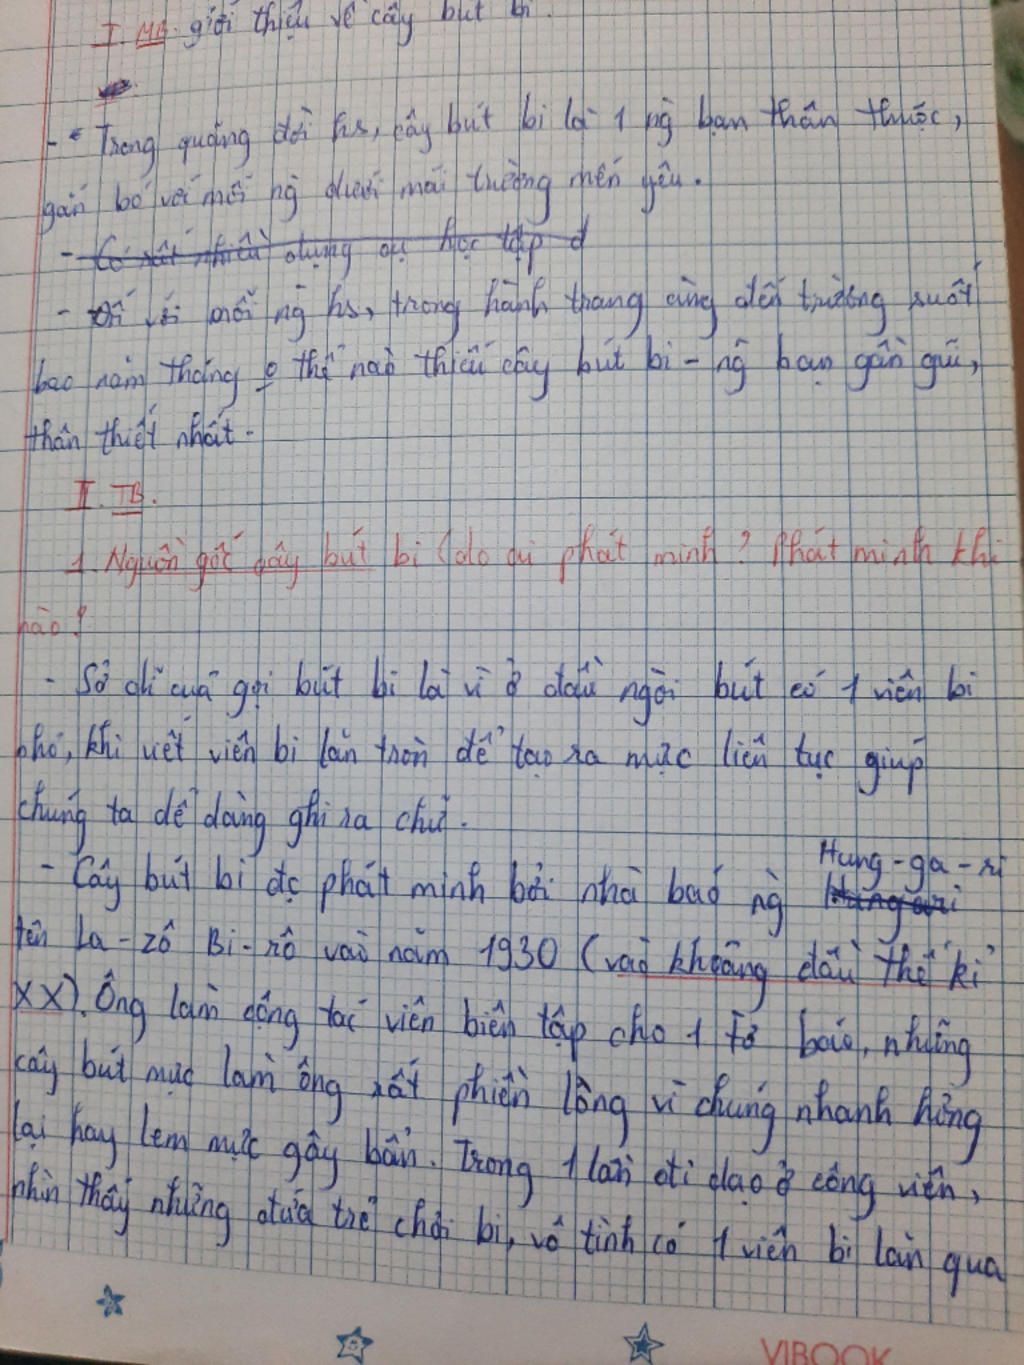 I. MB. giới thiệu về cây bút bi.
- Trong quãng đời hs, cây bút bi là 1 ng bạn thân thuộc,
gắn bó với mỗi ng dưới mái trường mến yêu.
- Có rất nhiều dụng cụ học tập đ
- Đối với mỗi ng hs, trong hành trang cùng đến trường suốt
bao năm tháng o thể nào thiếu cây bút bi - ng bạn gần gũi,
thân thiết nhất.
II. TB.
1. Nguồn gốc cây bút bi (do ai phát minh? Phát minh khi
nào?
- Sở dĩ gọi bút bi là vì ở đầu ngòi bút có 1 viên bi
nhỏ, khi viết viên bi lăn tròn để tạo ra mực liên tục giúp
chúng ta dễ dàng ghi ra chữ.
Hung-ga-ri
- Cây bút bi đc phát minh bởi nhà báo ng Hungari
tên La-zô Bi-rô vào năm 1930 (vào khoảng đầu thế kỉ
XX). Ông làm cộng tác viên biên tập cho 1 tờ báo, những
cây bút mực làm ông rất phiền lòng vì chúng nhanh hỏng
lại hay lem mực gây bẩn. Trong 1 lần đi dạo ở công viên,
nhìn thấy những đứa trẻ chơi bi, vô tình có 1 viên bi lăn qua
VIBOOK